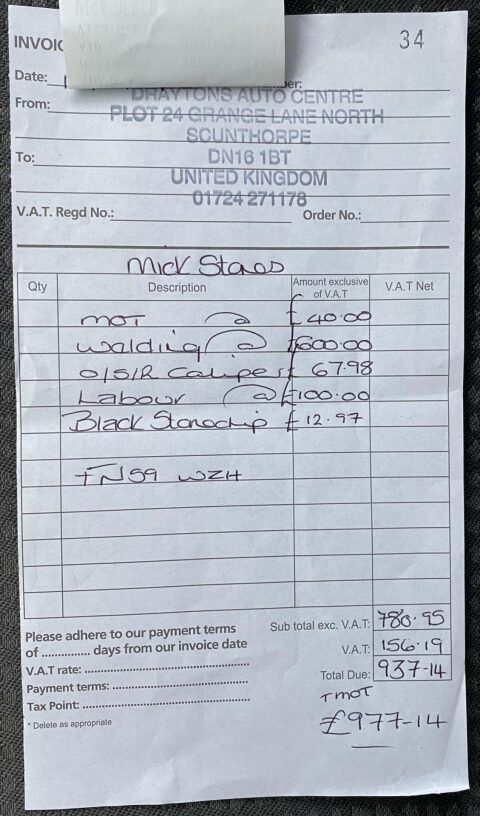 34
INVOIC
Date:
ber:
From:
DRAYTONS AUTO CENTRE
PLOT 24 GRANGE LANE NORTH
SCUNTHORPE
To:
DN16 1BT
UNITED KINGDOM
01724 271178
V.A.T. Regd No.: Order No.:
Mick
Qty Description Amount exclusive of V.A.T V.A.T Net
MOT @ £40.00
Walding @ £600.00
O/S/R Caliper £ 67.98
Labour @ £100.00
Black Stonechip £12.97
FN59 WZH
Please adhere to our payment terms
of .............. days from our invoice date
V.A.T rate:
Payment terms:
Tax Point:
* Delete as appropriate
Sub total exc. V.A.T: 780.95
V.A.T: 156.19
Total Due: 937-14
+MOT
£977-14